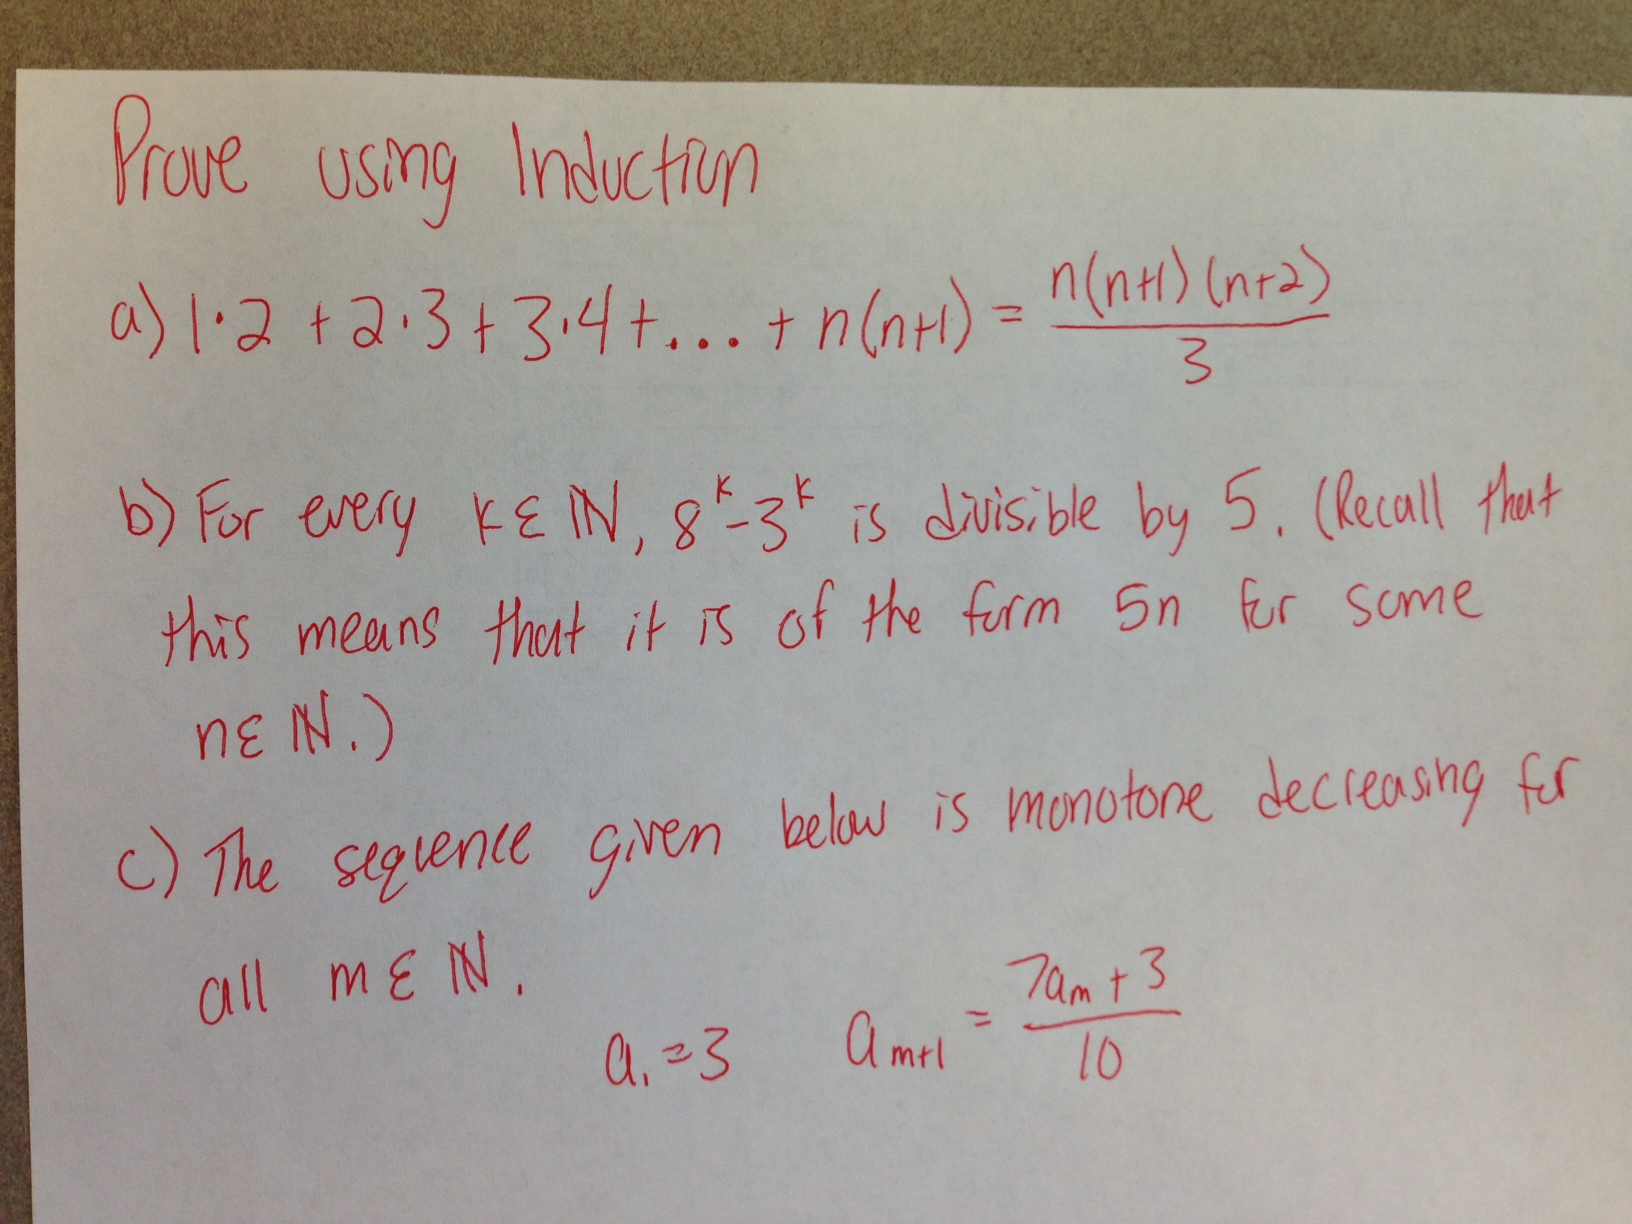 Prove using Induction
a) 1·2 + 2·3 + 3·4 + .... + n(n+1) = n(n+1)(n+2)/3
b) For every k ∈ ℕ, 8^k - 3^k is divisible by 5. (Recall that
this means that it is of the form 5n for some
n ∈ ℕ.)
c) The sequence given below is monotone decreasing for
all m ∈ ℕ.
a₁ = 3 a_{m+1} = (7a_m + 3)/10